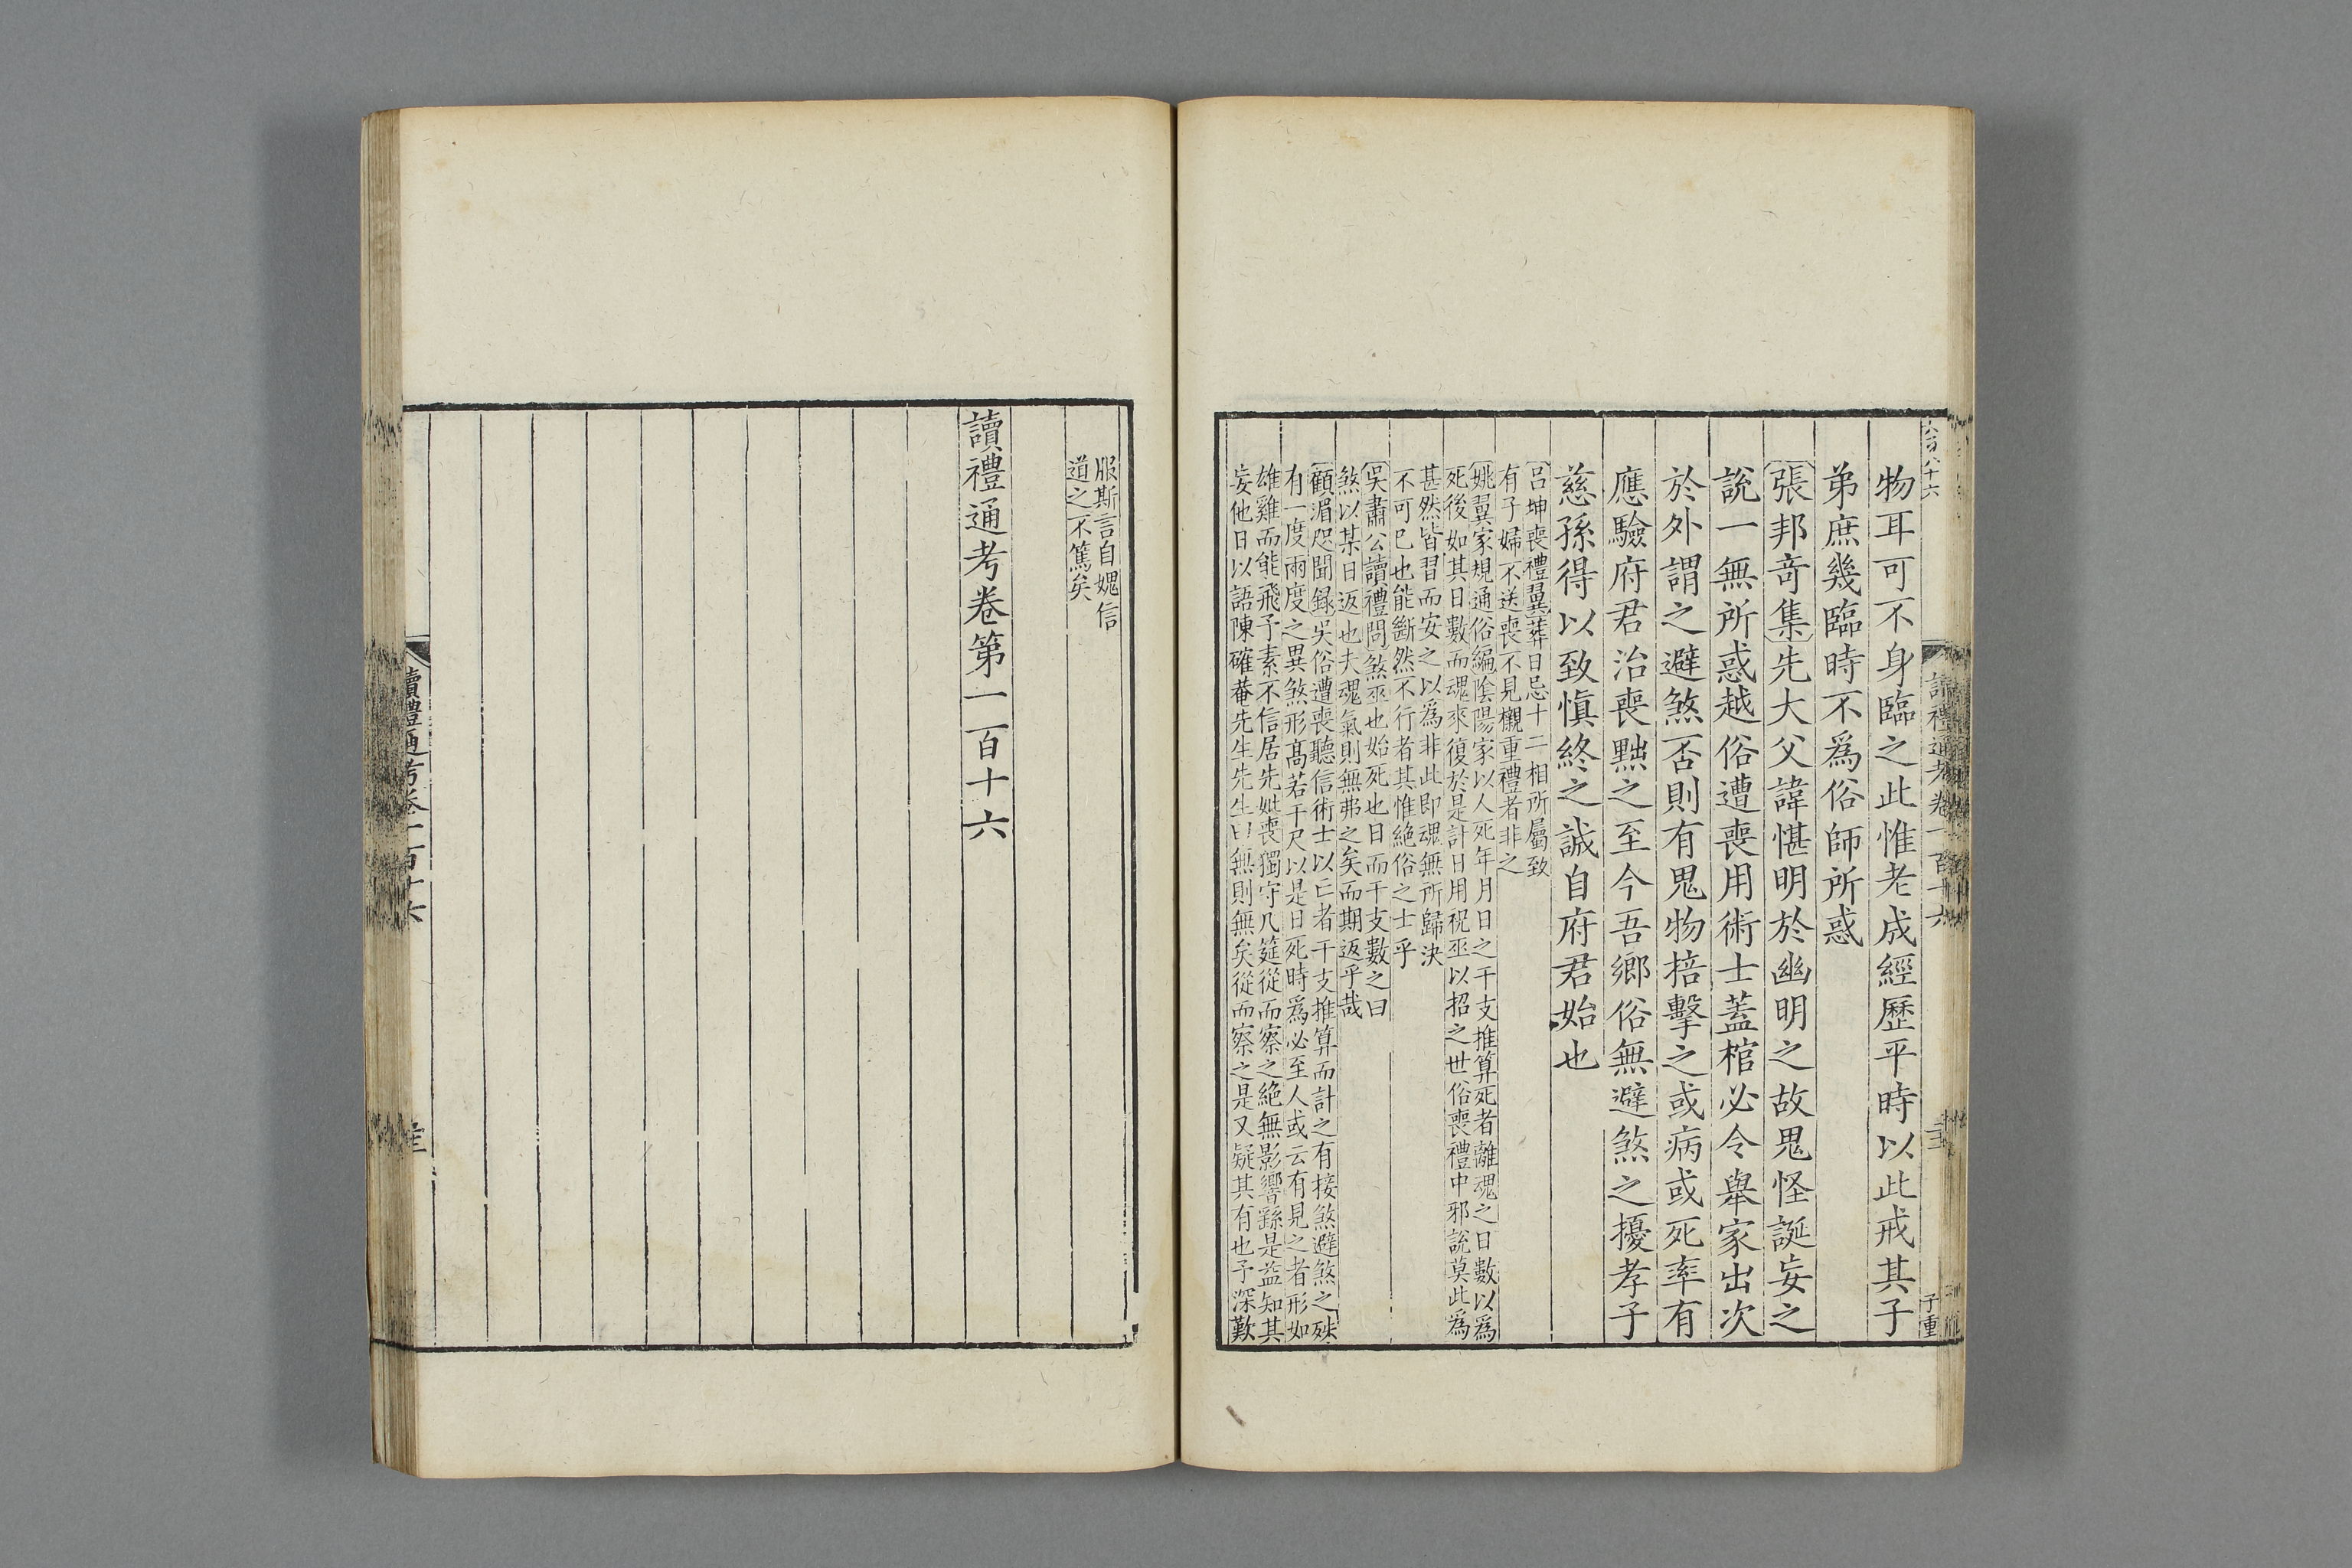 物耳可不身臨之此惟老成經歷平時以此戒其子
弟庶幾臨時不爲俗師所惑
張邦竒集先大父諱愖明於幽明之故鬼怪誕妄之
說一無所惑越俗遭喪用術士蓋棺必令舉家出次
於外謂之避煞否則有鬼物掊擊之或病或死率有
應驗府君治喪黜之至今吾鄉俗無避煞之擾孝子
慈孫得以致愼終之誠自府君始也
吕坤喪禮翼葬日忌十二相所屬致
有子婦不送喪不見櫬重禮者非之
姚翼家規通俗編陰陽家以人死年月日之干支推算死者離魂之日數以爲
死後如其日數而魂來復於是計日用祝巫以招之世俗喪禮中邪說莫此爲
甚然皆習而安之以爲非此即魂無所歸決
不可已也能斷然不行者其惟絶俗之士乎
吳肅公讀禮問煞巫也始死也日而干支數之曰
煞以某日返也夫魂氣則無弗之矣而期返乎哉
顧湄咫聞録吳俗遭喪聽信術士以亡者干支推算而計之有接煞避煞之殃
有一度兩度之異煞形髙若干尺以是日死時爲必至人或云有見之者形如
雄雞而能飛予素不信居先妣喪獨守几筵從而察之絶無影響繇是益知其
妄他日以語陳確菴先生先生曰無則無矣從而察之是又疑其有也予深歎
讀禮通考卷一百十六
子重
服斯言自媿信
道之不篤矣
讀禮通考卷第一百十六
讀禮通考卷一百十六